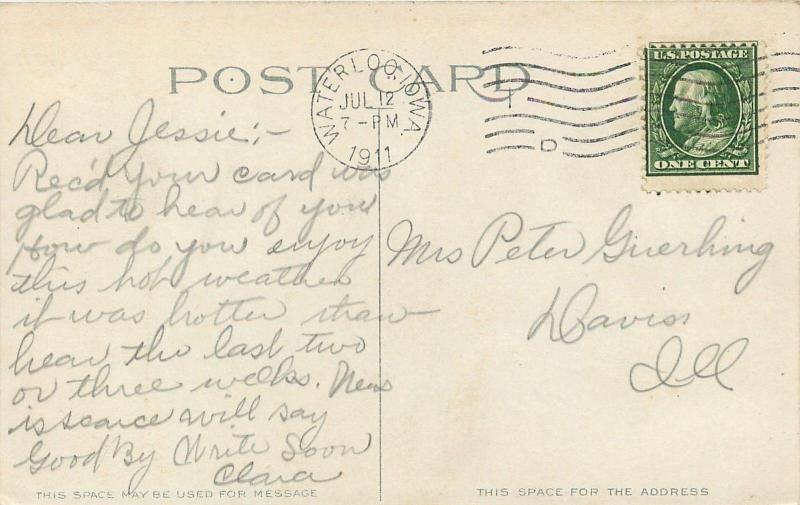 POST CARD
WATERLOO, IOWA
JUL 12
7-PM
1911
D
U.S. POSTAGE
ONE CENT
Dear Jessie;-
Rec'd your card was
glad to hear of you
How do you enjoy
this hot weather
it was hotter
hear the last two
or three weeks. News
is scarce will say
Good By Write Soon
Clara
Mrs Peter Guerhing
Davis
Ill
THIS SPACE MAY BE USED FOR MESSAGE
THIS SPACE FOR THE ADDRESS